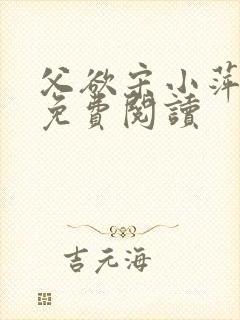 父欲宋小萍
免費閱讀
吉元海